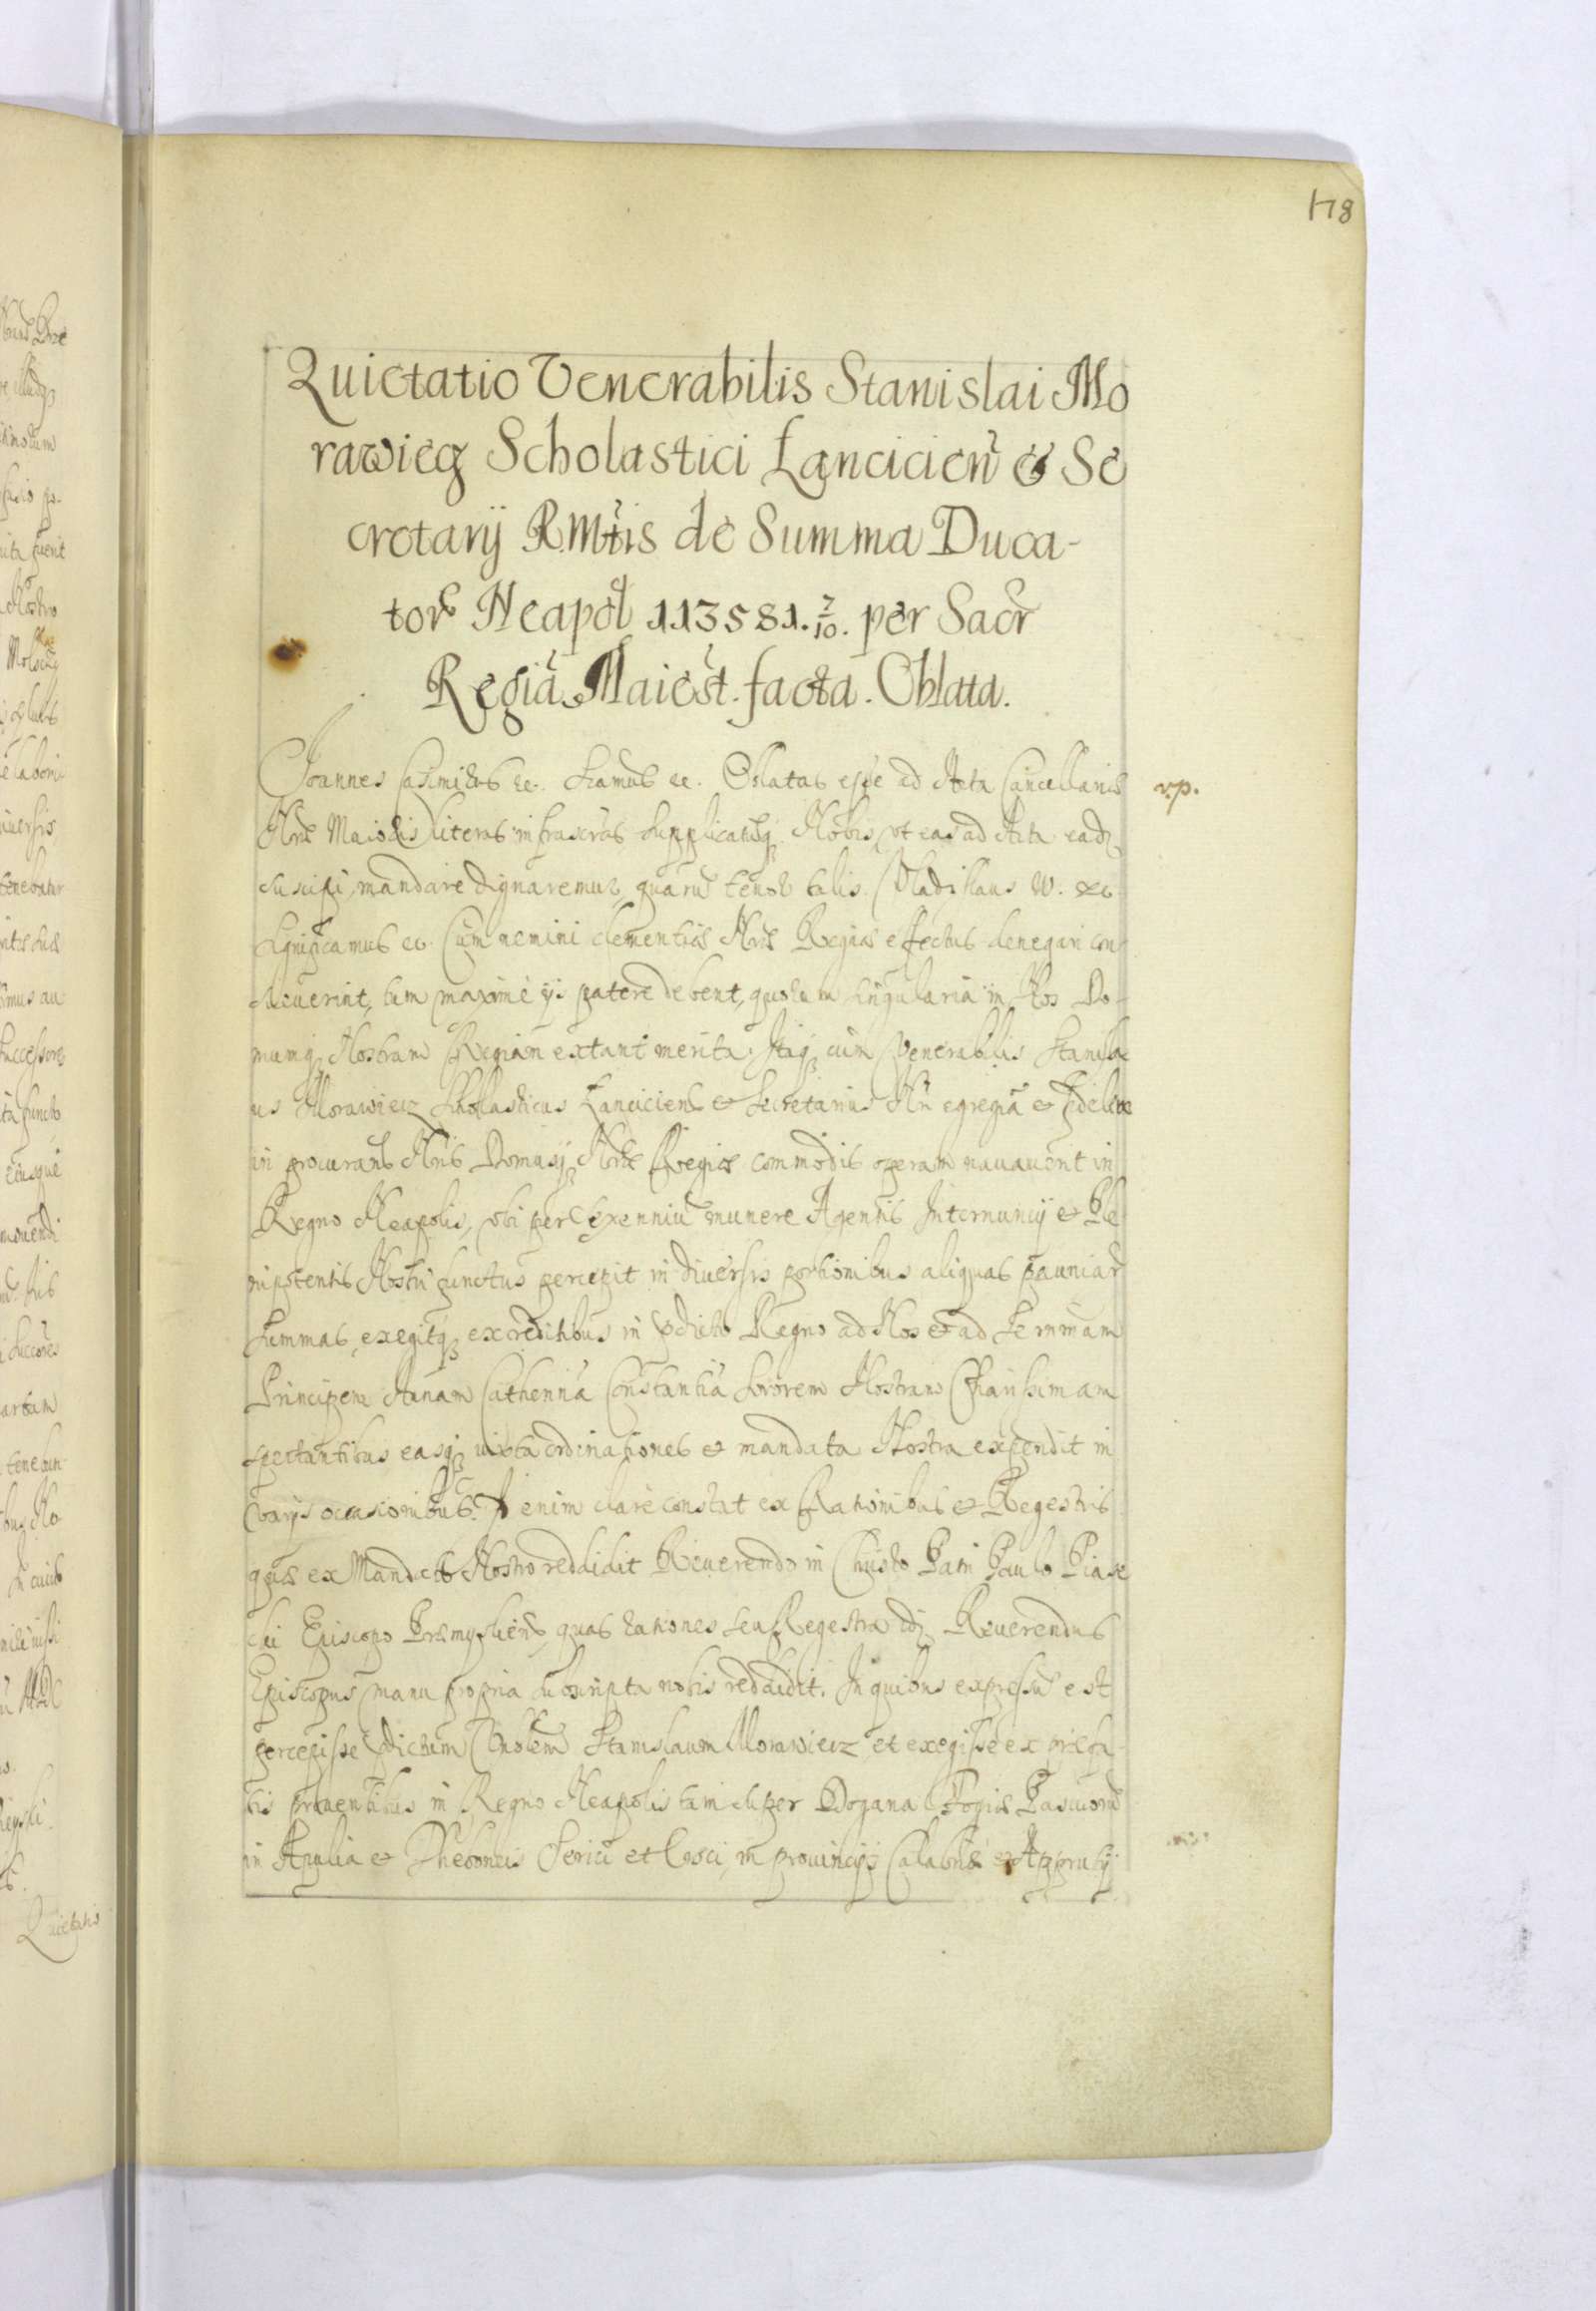 178
Quietatio Venerabilis Stanislai Mo
rawiecz Scholastici Lancicien̄ & Se
cretarij RMtis de Summa Duca-
tor Neapol 113581. 7/10. per Sacr
Regiā Maiest. facta. Oblata.
Joannes Casimirus &c. Sciamus &c. Oblatas esse ad Acta Cancellariæ
v.p.
Nræ Maioris literas infrascras supplicatūq; Nobis, vt eas ad Acta eadz
suscipi, mandare dignaremur, quarū tenor talis. Vladislaus IV. &c
Significamus &c. Cum nemini clementiæ Nræ Regiæ effectus denegari con
sueuerint, tum maximè ijs patere debent, quorum singularia in Nos Do-
mumq; Nostram Regiam extant merita. Itaq; cum Venerabilis Stanisla
us Morawiecz Scholasticus Lanciciens & Secretarius Nr egregiā & fidelem
in procurans Nris Domusq; Nræ Regiæ commodis operam nauauerit in
Regno Neapolis, vbi per sexenniū munere Agentis Internuncij & Ple
nipotentis Nostri functus percepit in diuersis portionibus aliquas pecuniar
summas, exegitq; ex creditibus in pdicto Regno ad Nos & ad Sermam
Principem Annam Catherinā Constantiā Sororem Nostram Charissimam
spectantibus easq; iuxta ordinationes & mandata Nostra expendit in
varijs occasionibus. enim clarè constat ex Rationibus & Regestris
quas ex Mandato Nostro reddidit Reuerendo in Christo Patri Paulo Piase
cki Episcopo Præmysliens, quas rationes seu Regestra idz Reuerendus
Episcopus manu propria subscripta nobis reddidit. In quibus expressū est
percepisse pdictum Vnblem Stanislaum Morawiecz et exegisse ex præfa
tis prouentibus in Regno Neapolis tam super Dogana Fogiæ Pascuorū
in Apulia & Serici et Crosci, in prouincijs Calabriæ & Apprutij